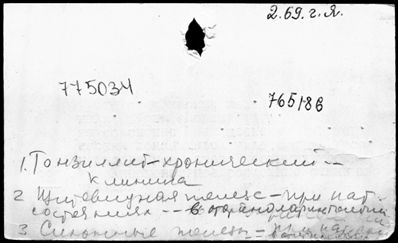 2.69.г.Я.
775034
765186
1. Тонзиллит-хронический --
клиника
2 Щитовидная железа - при пат.
состояниях -- в отоларингологии
3 Слюнные железы -